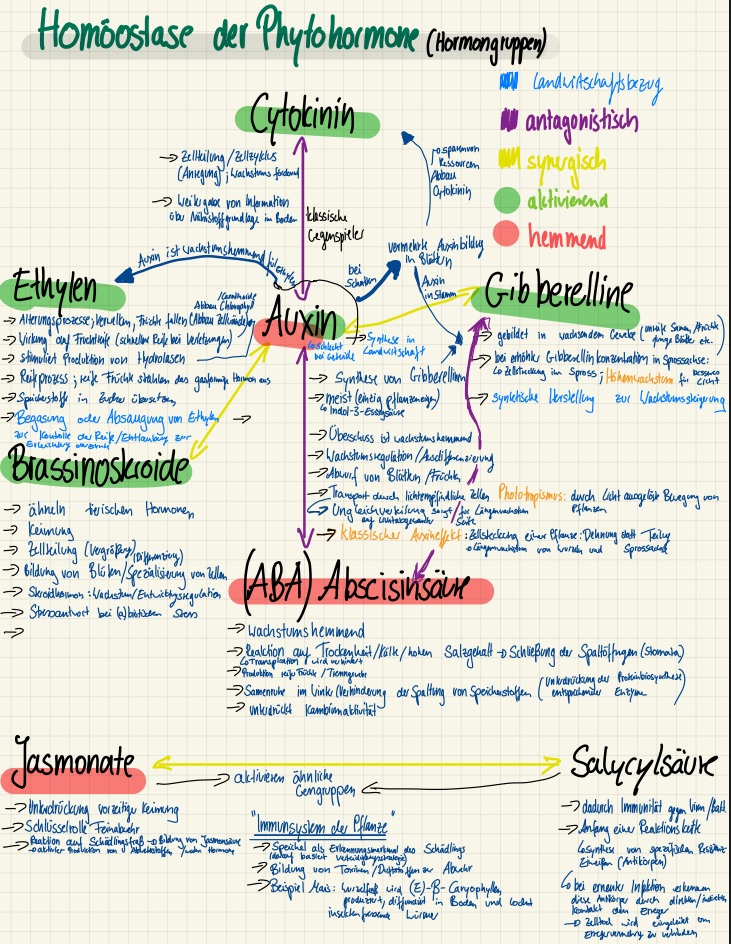 Homöostase der Phytohormone (Hormongruppen)
Landwirtschaftsbezug
antagonistisch
synergisch
aktivierend
hemmend
Cytokinin
→ Zellteilung / Zellzyklus
(Anregung) ; wachstumsfördernd
→ Weitergabe von Information
über Nährstoffgrundlage im Boden
klassische
Gegenspieler
→ sparen von
Ressourcen
Abbau
Cytokinin
vermehrte Auxinbildung
in Blättern
bei
Schatten
Auxin
in Stamm
Auxin ist wachstumshemmend für
Ethylen
→ Alterungsprozesse; Verwelken, Früchte fallen (Abbau Zellwände)
→ Wirkung auf Fruchtreife (schnellere Reife bei Verletzungen)
→ stimuliert Produktion von Hydrolasen
→ Reifeprozess ; reife Früchte strahlen das gasförmige Hormon aus
→ Speicherstoffe in Zucker übersetzen
→ Begasung oder Absaugung von Ethylen →
zur Kontrolle der Reife / Entlaubung zur
Abbau Chlorophyll
Auxin
→ Synthese in
Landwirtschaft
schlecht
bei Getreide
→ Synthese von Gibberellinen
→ meist (einzig pflanzeneigen)
Indol-3-Essigsäure
→ Überschuss ist wachstumshemmend
→ Wachstumsregulation / Ausdifferenzierung
→ Abwurf von Blättern / Früchten
→ Transport durch lichtempfindliche Zellen
→ Ungleichverteilung sorgt für Längenwachstum
auf Seite
→ klassischer Auxineffekt : Zellstreckung einer Pflanze : Dehnung statt Teilung
→ Längenwachstum von Wurzeln und Sprossachse
Phototropismus: durch Licht ausgelöste Bewegung von
Pflanzen
Gibberelline
→ gebildet in wachsendem Gewebe (unreife Samen, Früchte
junge Blätter etc.)
→ bei erhöhter Gibberellinkonzentration in Sprossachse:
Zellstreckung im Spross ; Höhenwachstum für besseres
Licht
→ synthetische Herstellung zur Wachstumssteigerung
Brassinosteroide
→ ähneln tierischen Hormonen
→ Keimung
→ Zellteilung (Vergrößerung / Differenzierung)
→ Bildung von Blüten / Spezialisierung von Zellen
→ Steroidhormon : Wachstum / Entwicklungsregulation
→ Stressantwort bei (a)biotischem Stress
→
(ABA) Abscisinsäure
→ wachstumshemmend
→ Reaktion auf Trockenheit / Kälte / hohen Salzgehalt → Schließung der Spaltöffnungen (Stomata)
Transpiration wird verhindert
→ Produktion reifer Früchte / Trenngewebe
→ Samenruhe im Winter (Verhinderung der Spaltung von Speicherstoffen (Unterdrückung der Proteinbiosynthese)
entsprechender Enzyme
→ unterdrückt Kambiumaktivität
Jasmonate
→ aktivieren ähnliche
Gengruppen
Salycylsäure
→ Unterdrückung vorzeitiger Keimung
→ Schlüsselrolle Feinabwehr
→ Reaktion auf Schädlingsfraß → Bildung von Jasmonsäure
→ aktiver Produktion von Abwehrstoffen / weitere Hormone
"Immunsystem der Pflanze"
→ Speichel als Erkennungsmerkmal des Schädlings
(darauf basiert Verteidigungsstrategie)
→ Bildung von Toxinen / Duftstoffen zur Abwehr
→ Beispiel Mais: Wurzelfraß wird (E)-β-Caryophyllen
produziert, diffundiert in Boden und lockt
insektenfressende Würmer
→ dadurch Immunität gegen Viren / Bakt.
→ Anfang einer Reaktionskette
Synthese von spezifischen Resistenz
Eiweißen (Antikörpern)
bei erneuter Infektion erkennen
diese Antikörper durch direkten / indirekten
Kontakt den Erreger
→ Zelltod wird eingeleitet um
Erregervermehrung zu verhindern